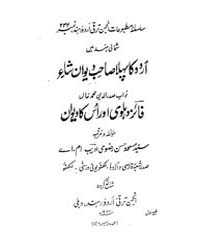 سلسلہ مطبوعات انجمن ترقی اردو ہند نمبر
شمالی ہند میں
اردو کا پہلا صاحب دیوان شاعر
نواب صدر الدین محمد خاں
فائز دہلوی اور اُس کا دیوان
سید مسعود حسن رضوی ادیب ایم۔ اے
شائع کردہ
انجمن ترقی اردو ہند دہلی